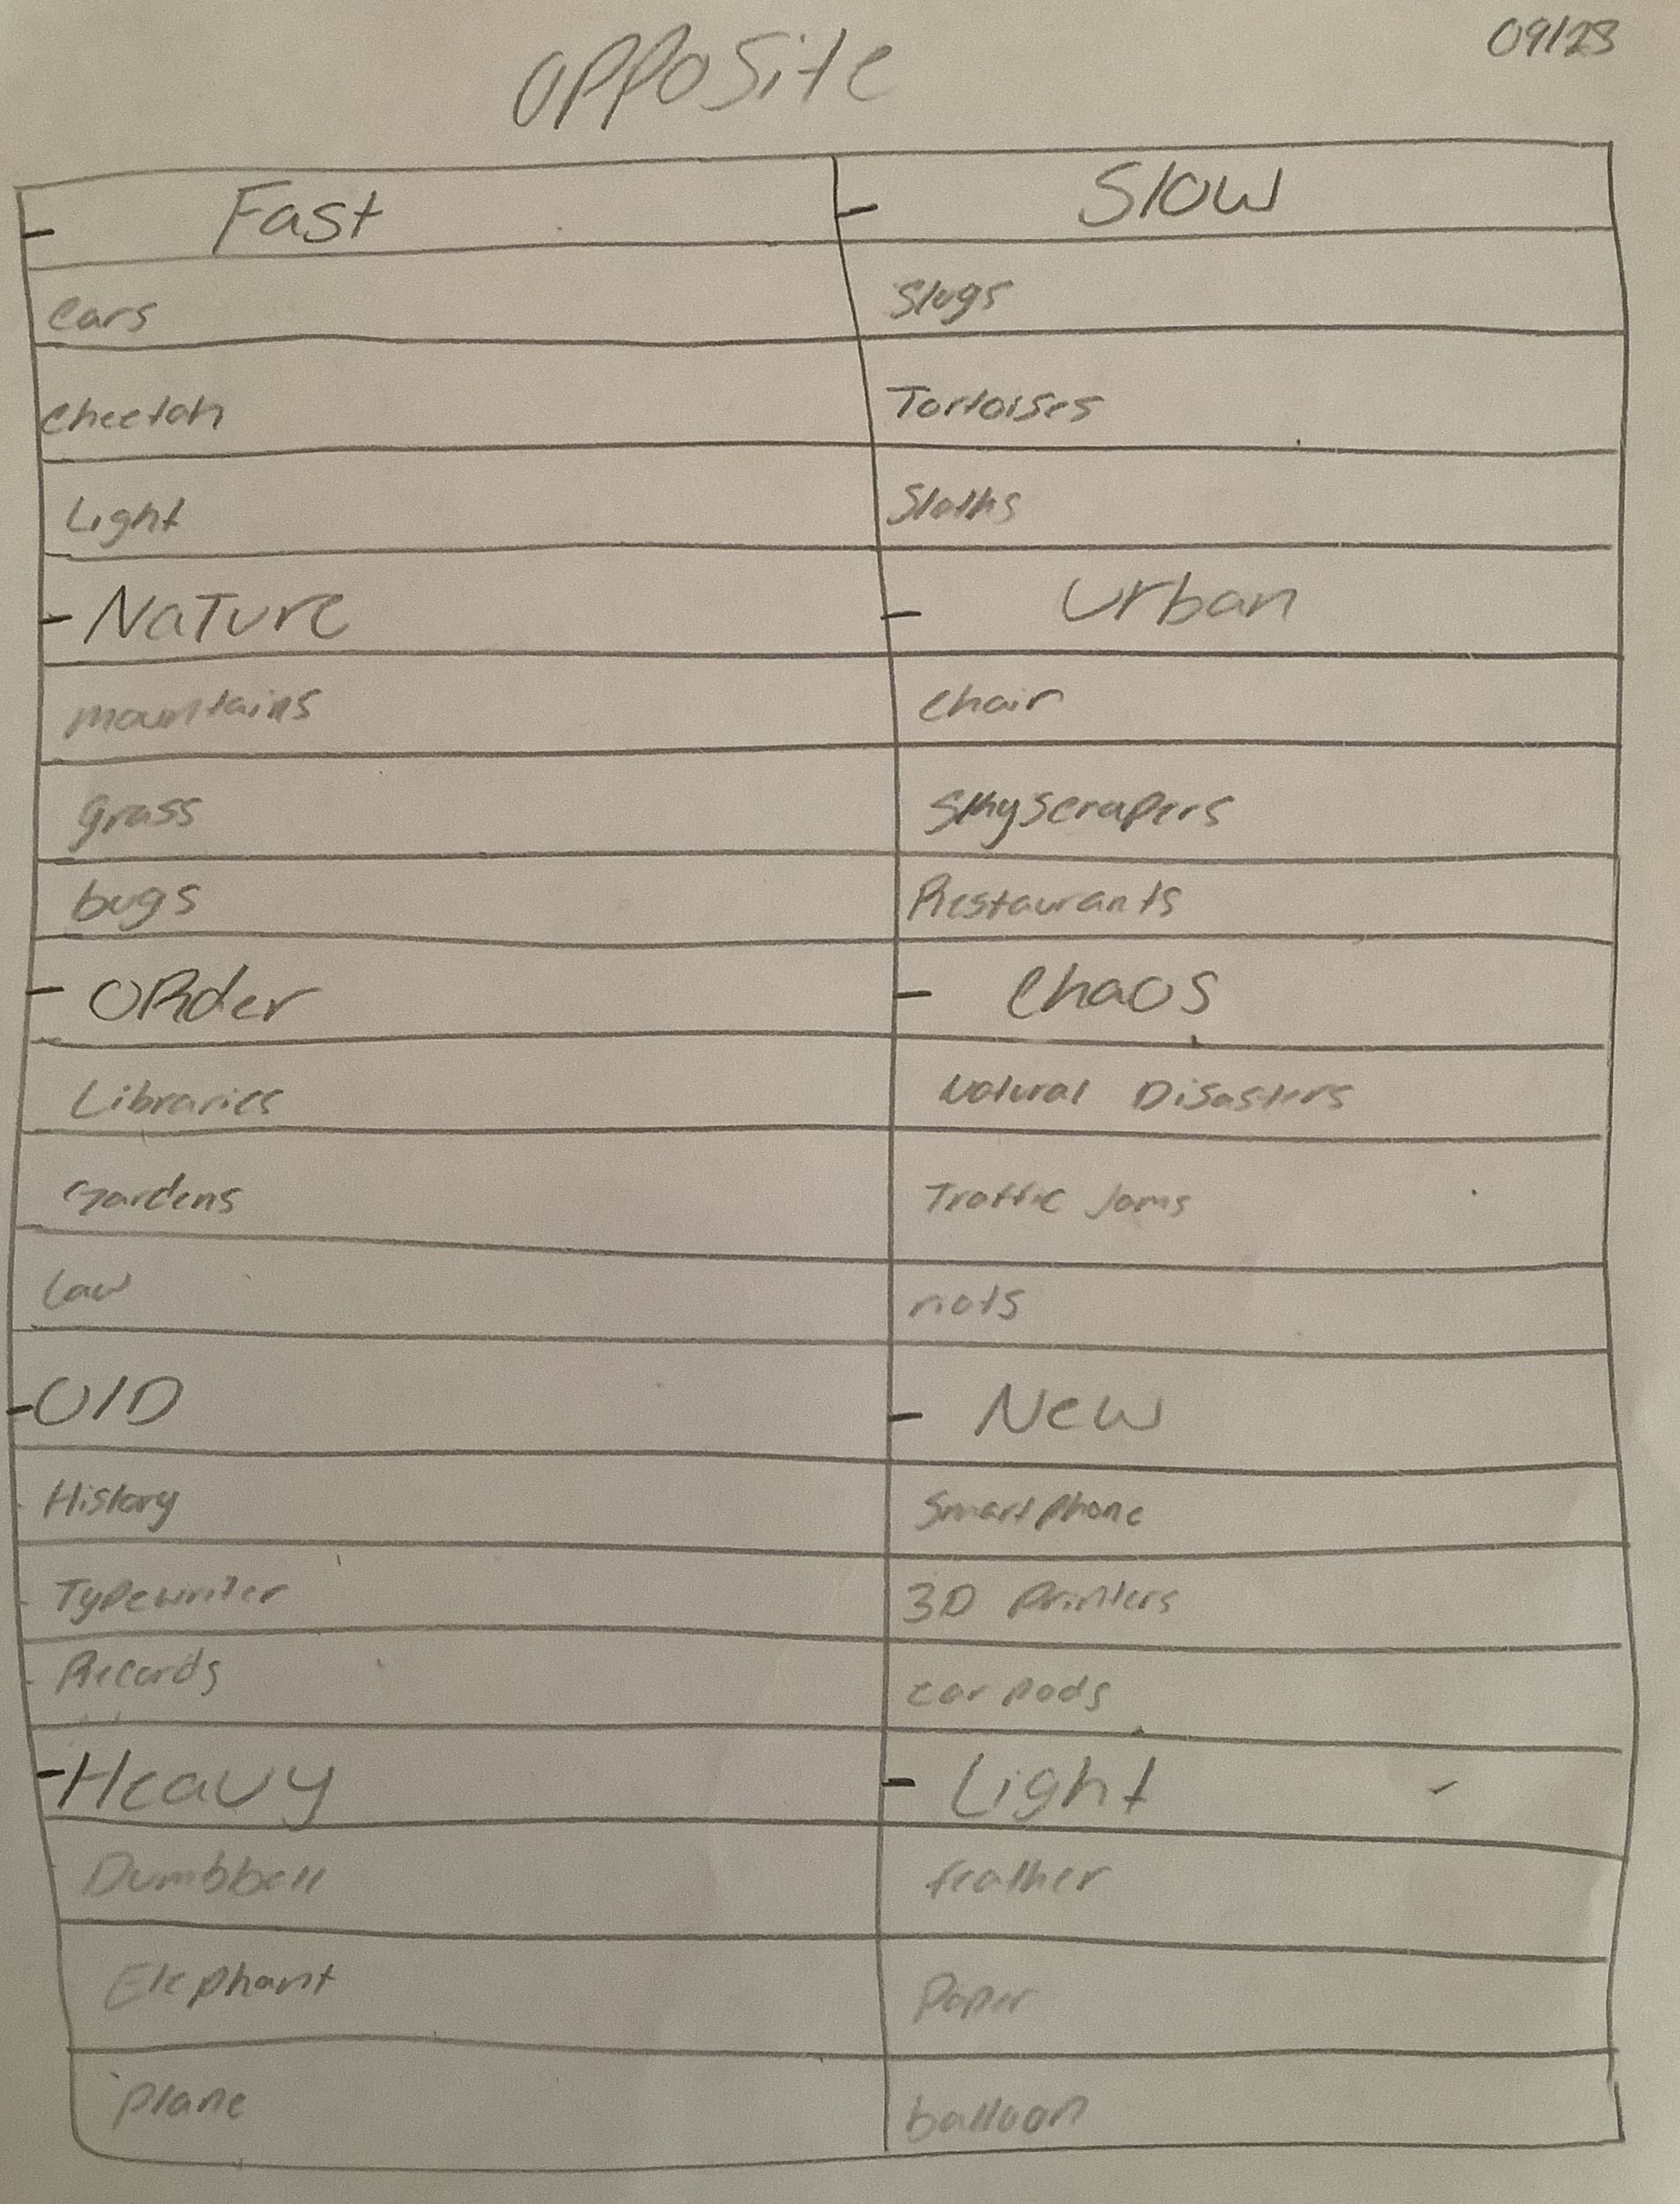 opposite 09/23
- Fast - Slow
cars Slugs
cheetah Tortoises
Light Sloths
- NaTure - Urban
mountains chair
grass Skyscrapers
bugs Restaurants
- ORder - Chaos
Libraries Natural Disasters
Gardens Traffic Jams
Law riots
- OlD - New
History Smartphone
Typewriter 3D Printers
Records ear pods
- Heavy - Light
Dumbbell feather
Elephant Paper
plane balloon